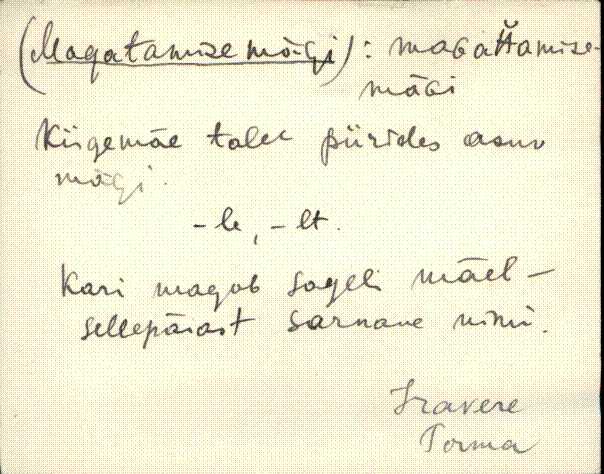 (Magatamise mägi) : maGaťťamize-
mäGi
Kiigemäe talu piirides asuv
mägi.
-le, -lt.
Kari magab sageli mäel -
sellepärast sarnane nimi.
Iravere
Torma